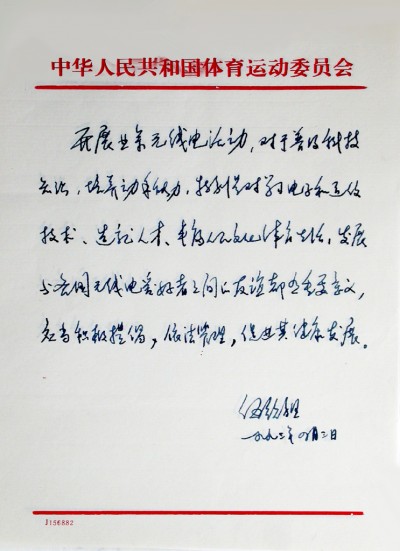 中华人民共和国体育运动委员会
开展业余无线电活动,对于普及科技
知识,培养动手能力,特别是对学习电子和通信
技术、造就人才、丰富人民文化体育生活,发展
与各国无线电爱好者之间的友谊都有重要意义,
应当积极提倡,依法管理,促进其健康发展。
伍绍祖
一九九二年 月二日
J156882